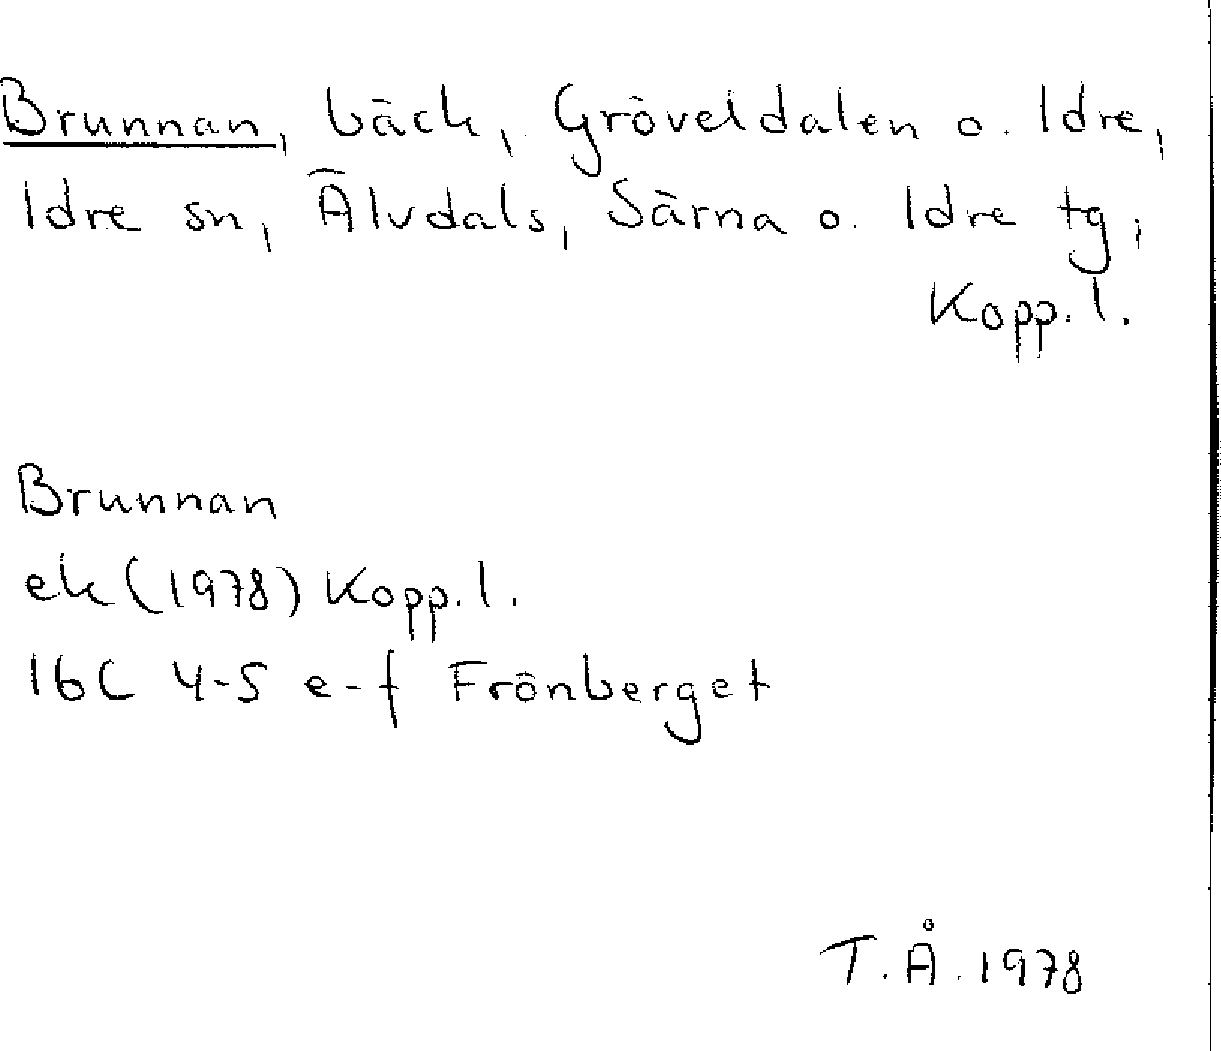 Brunnan, bäck, Gröveldalen o. Idre,
Idre sn, Älvdals, Särna o. Idre tg,
Kopp. l.
Brunnan
ek (1978) Kopp. l.
16C 4-5 e-f Frönberget
T.Å. 1978